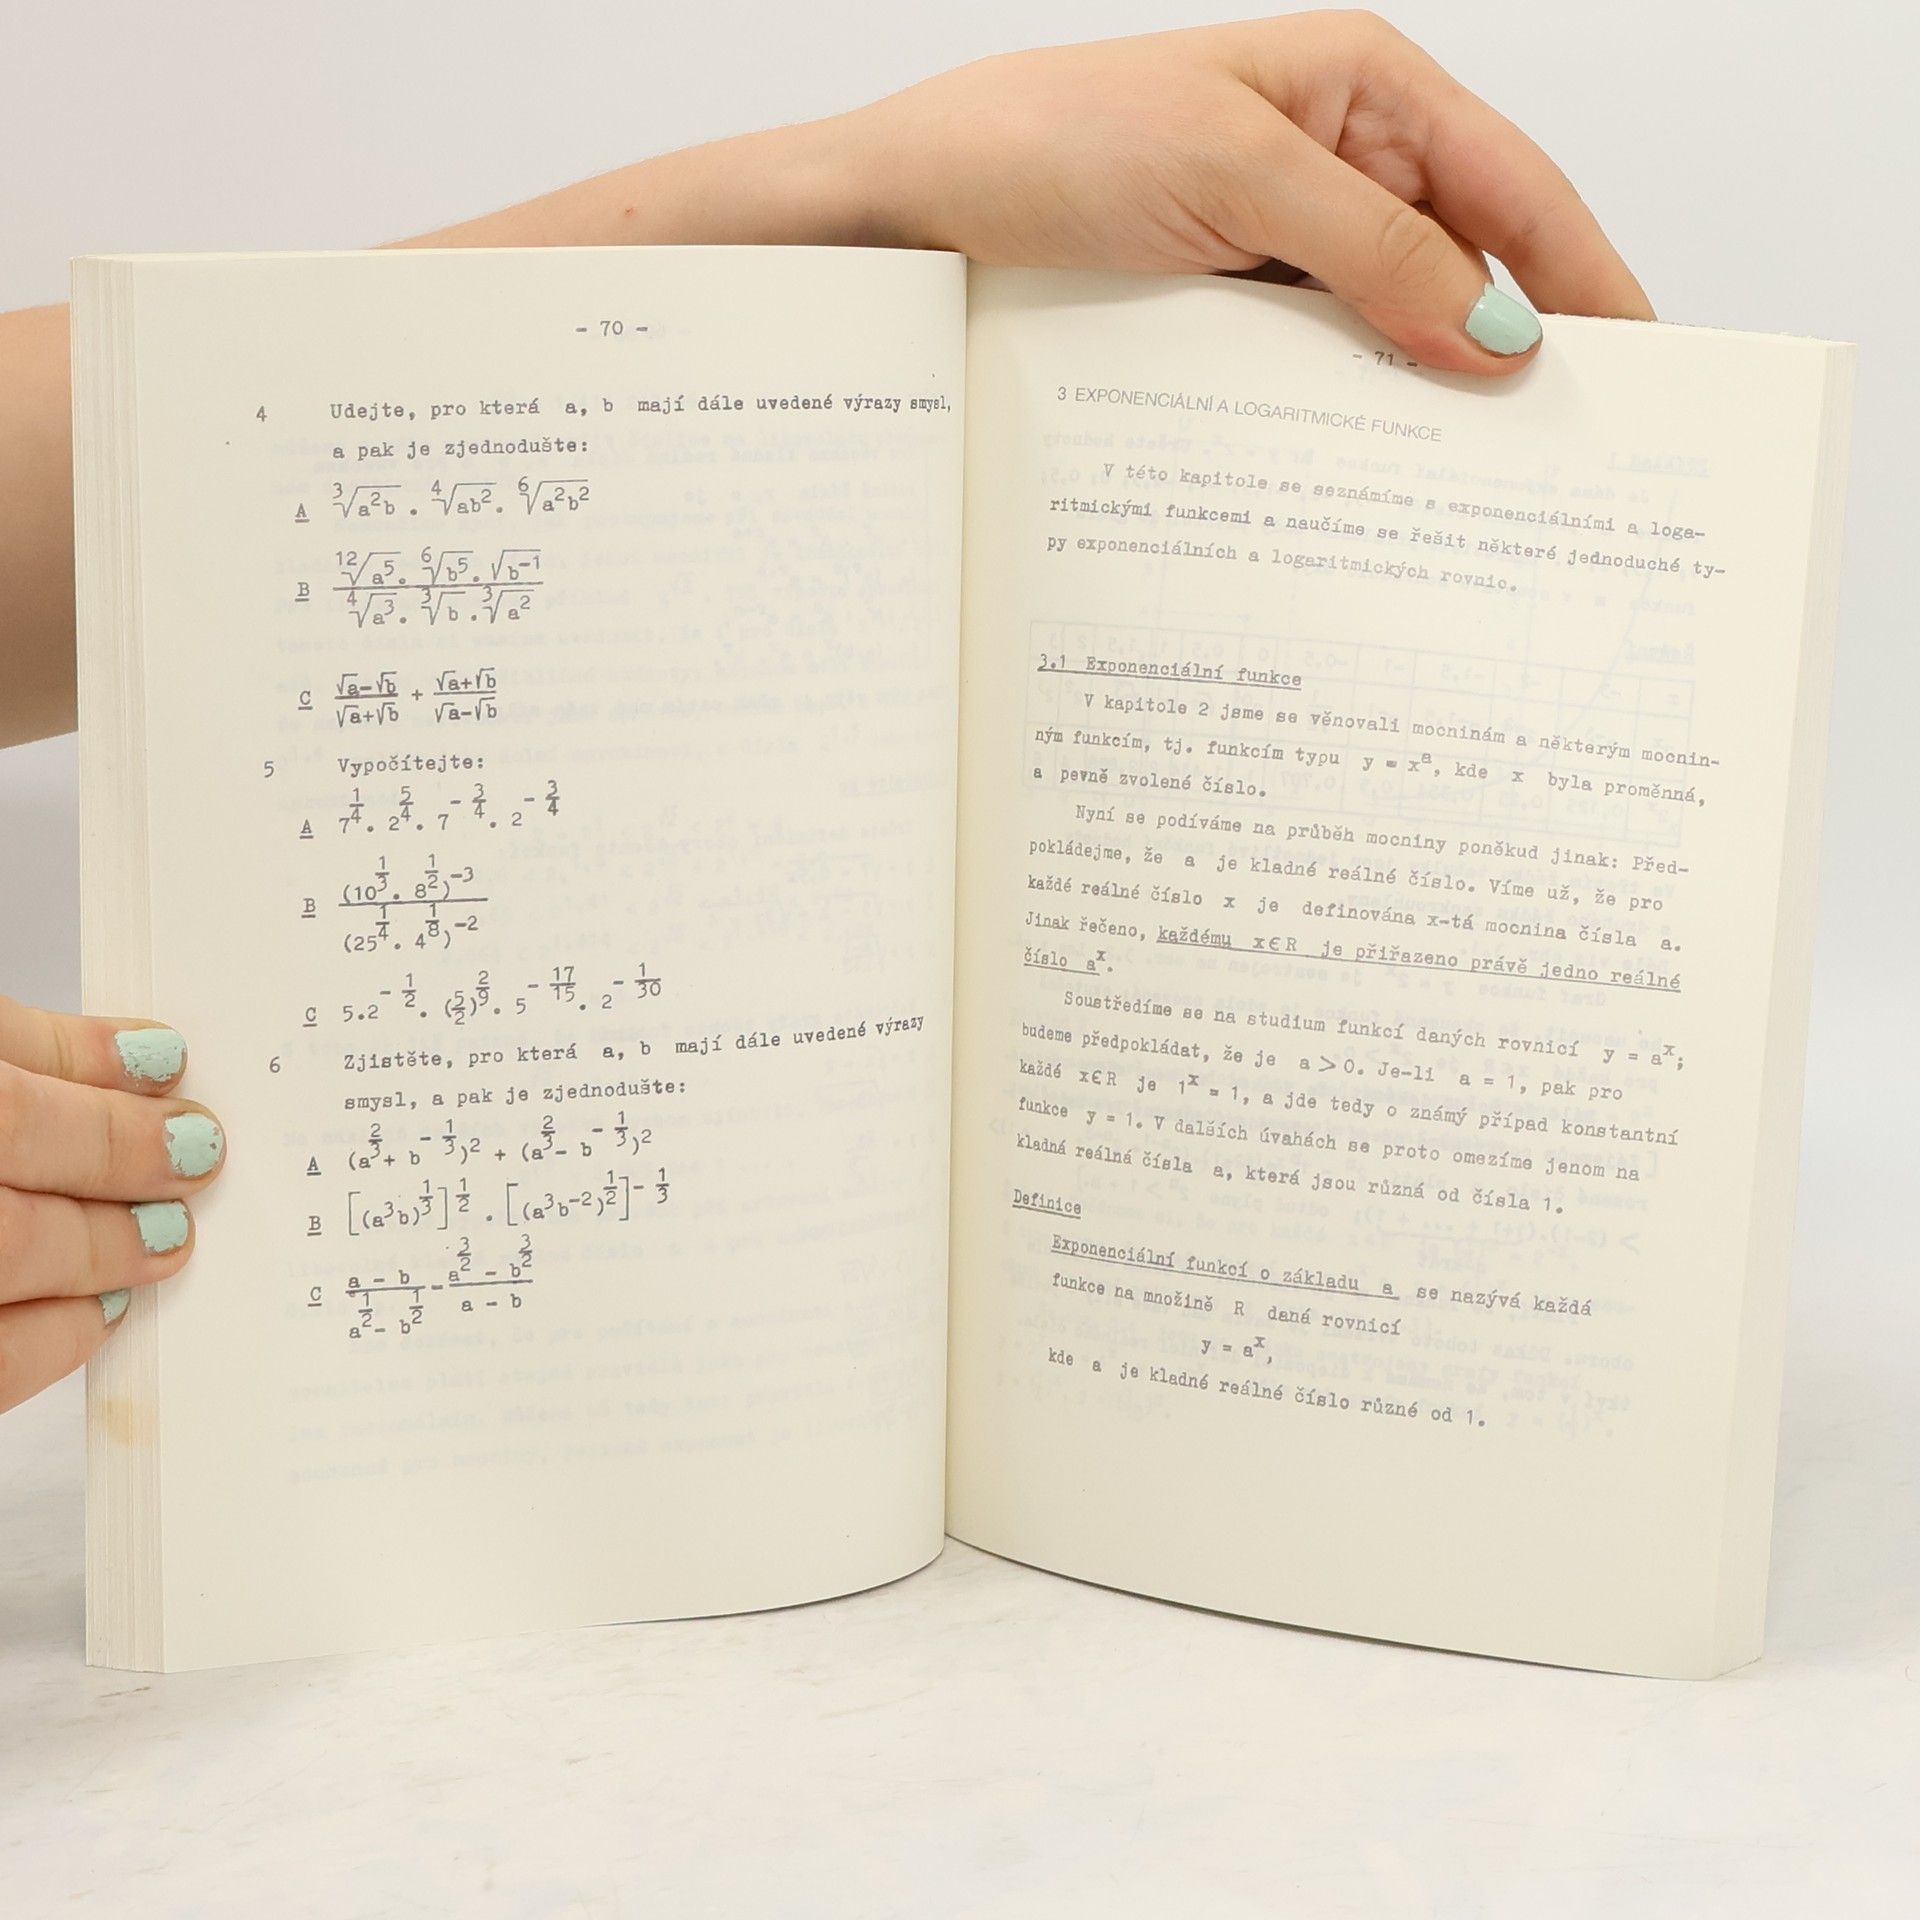 - 70 -
4 Udejte, pro která a, b mají dále uvedené výrazy smysl,
a pak je zjednodušte:
A ∛(a²b) . ∜(ab²). ⁶√(a²b²)
B (¹²√(a⁵). ⁶√(b⁵). √(b⁻¹)) / (∜(a³). ∛b . ∛(a²))
C (√a-√b)/(√a+√b) + (√a+√b)/(√a-√b)
5 Vypočítejte:
A 7^(1/4). 2^(5/4). 7^(-3/4). 2^(-3/4)
B (10^(1/3). 8^(1/2))^(-3) / (25^(1/4). 4^(1/8))^(-2)
C 5.2^(-1/2). (5/2)^(2/9). 5^(-17/15). 2^(-1/30)
6 Zjistěte, pro která a, b mají dále uvedené výrazy
smysl, a pak je zjednodušte:
A (a^(2/3)+ b^(-1/3))² + (a^(2/3)- b^(-1/3))²
B [(a³b)^(1/3)]^(1/2) . [(a³b⁻²)^(1/2)]^(-1/3)
C (a - b)/(a^(1/2)- b^(1/2)) - (a^(3/2) - b^(3/2))/(a - b)
- 71 -
3 EXPONENCIÁLNÍ A LOGARITMICKÉ FUNKCE
V této kapitole se seznámíme s exponenciálními a loga-
ritmickými funkcemi a naučíme se řešit některé jednoduché ty-
py exponenciálních a logaritmických rovnic.
3.1 Exponenciální funkce
V kapitole 2 jsme se věnovali mocninám a některým mocnin-
ným funkcím, tj. funkcím typu y = xᵃ, kde x byla proměnná,
a pevně zvolené číslo.
Nyní se podíváme na průběh mocniny poněkud jinak: Před-
pokládejme, že a je kladné reálné číslo. Víme už, že pro
každé reálné číslo x je definována x-tá mocnina čísla a.
Jinak řečeno, každému x∈R je přiřazeno právě jedno reálné
číslo aˣ.
Soustředíme se na studium funkcí daných rovnicí y = aˣ;
budeme předpokládat, že je a > 0. Je-li a = 1, pak pro
každé x∈R je 1ˣ = 1, a jde tedy o známý případ konstantní
funkce y = 1. V dalších úvahách se proto omezíme jenom na
kladná reálná čísla a, která jsou různá od čísla 1.
Definice
Exponenciální funkcí o základu a se nazývá každá
funkce na množině R daná rovnicí
y = aˣ,
kde a je kladné reálné číslo různé od 1.